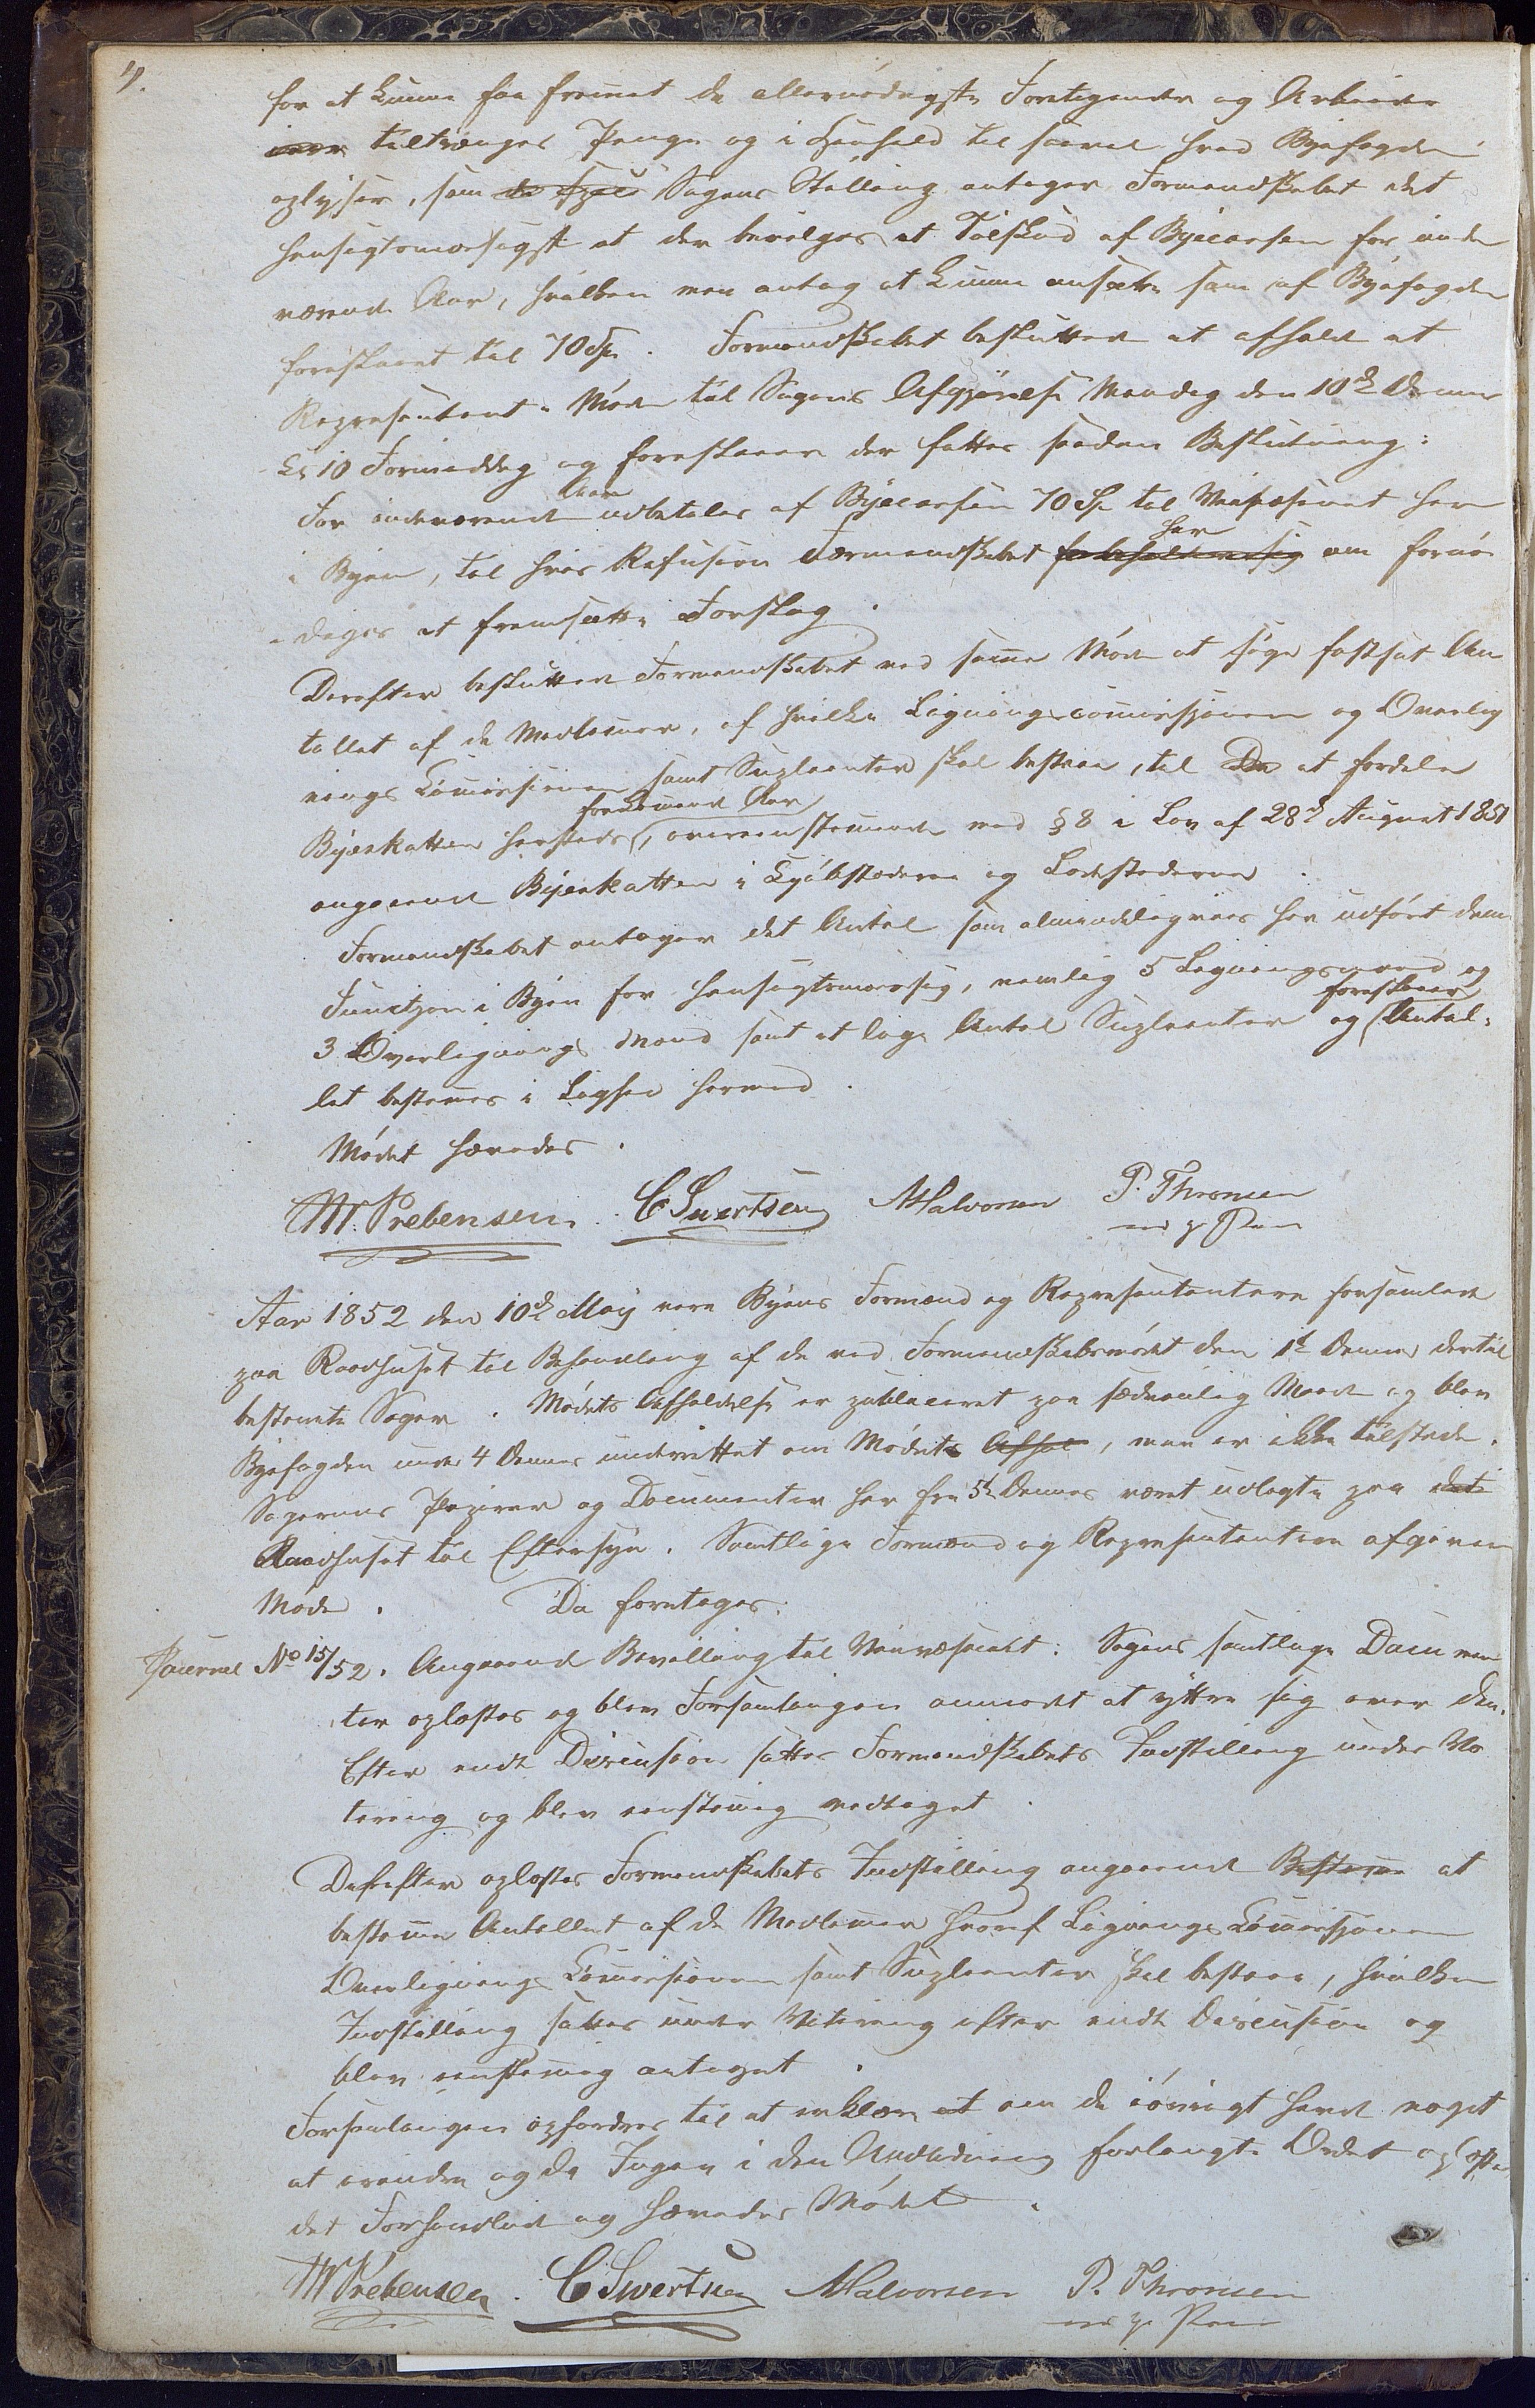 4.
for at kunne faa fremet de allernødvgste Foretagender og Arbeider
tiltrænges Penge og i Henhold til saavel hvad Byefogden
oplyser, som de Spec Sagens Stilling antager Formandskabet det
hensigtsmæssigst at der bevilges et Tilskud af Byecassen for inde
værende Aar, hvilken man antog at kunne ansætte som af Byefogden
foreslaaet til 70 Sp. Formandskabet besluttede at afholde et
Representant-Møde til Sagens Afgjørelse Mandag den 10de Dennes
Kl 10 Formiddag og foreslaaer der fattes saadan Beslutning:
For indeværende Aar udbetales af Byecassen 70 Sp til Veivæsenet her
i Byen, til hvis Refusion Formandskabet forbeholder sig har om fornø-
-diges at fremsætte Forslag.
Derefter besluttede Formandskabet ved samme Møde at søge fastsat An
tallet af de Medlemer, af hvilke Ligningscommissjonen og Overlig
nings Commissionen samt Suppleanter skal bestaae, til De at fordele
Byeskatten hersteds forekommende Aar, overeensstemmende med § 8 i Lov af 28de August 1851
angaaende Byeskatten i Kjøbstæderne og Ladestæderne.
Formandskabet antager det Antal som almindeligviis har udført denne
Function i Byen for hensigtsmæssig, nemlig 5 Ligningsmænd og
3 Overlignings Mænd samt et lige Antal Suppleanter og foreslaaer Antal-
let bestemes i Lighed hermed.
Mødet hævedes.
M. Prebensen. C Swertsen AHalvorsen P. Thronsen
m p Pen
Aar 1852 den 10de Maij vare Byens Formænd og Representantere forsamlede
paa Raadhuset til Behandling af de ved Formandskabsmødet den 1ste Dennes dertil
bestemte Sager. Mødets Afholdelse er publiceret paa sædvanlig Maade og blev
Byefogden under 4 Dennes underrettet om Mødets Afhol, men er ikke tilstede.
Sagernes Papirer og Documenter har fra 5te Dennes været udlagte paa det
Raadhuset til Eftersyn. Samtlige Formænd og Representantere afgiver
Møde. Da foretages:
Journal No 15/52. Angaaende Bevilling til Veivæsenet: Sagens samtlige Documen
ter oplæstes og blev Forsamlingen anmodet at yttre sig over den.
Efter endt Discussion sattes Formandskabets Indstilling under Vo
tering og blev eenstemig vedtaget.
Derefter oplæstes Formandskabets Indstilling angaaende Bestemme at
bestemme Antallet af de Medlemer hvoraf Lignings Commissjonen
Overlignings Commissionen samt Suppleanter skal bestaae, hvilken
Indstilling sattes under Votering efter endt Discussion og
blev eenstemmig antaget.
Forsamlingen opfordres til at erklære at om de iøvrigt havde noget
at erindre og da Ingen i den Anledning forlangte Ordet oplæstes
det Forhandlede og hævedes Mødet.
M Prebensen. C Swertsen AHalvorsen P. Thronsen
m p Pen